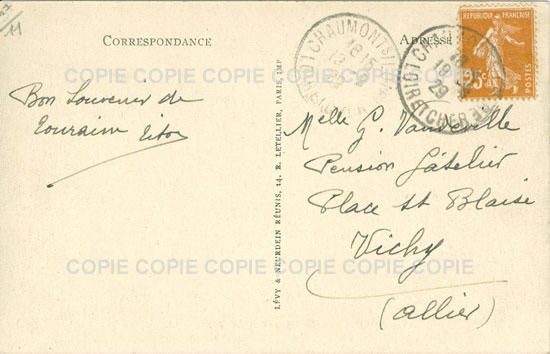 11
CORRESPONDANCE
ADRESSE
RÉPUBLIQUE FRANÇAISE
25c
POSTES
CHAUMONT S LOIRE
LOIR ET CHER
18
29
Bon Souvenir de
Touraine
Melle G. Vauxeville
Pension Gâtelier
Place St Blaise
Vichy
(Allier)
LÉVY & NEURDEIN RÉUNIS, 44, R. LETELLIER, PARIS, IMP
COPIE COPIE COPIE COPIE COPIE COPIE
COPIE COPIE COPIE COPIE COPIE COPIE